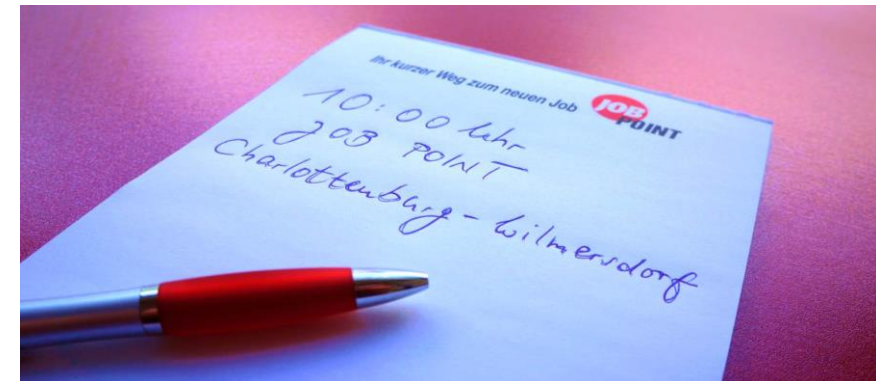 Ihr kurzer Weg zum neuen Job JOB POINT
10:00 Uhr
JOB POINT
Charlottenburg - Wilmersdorf